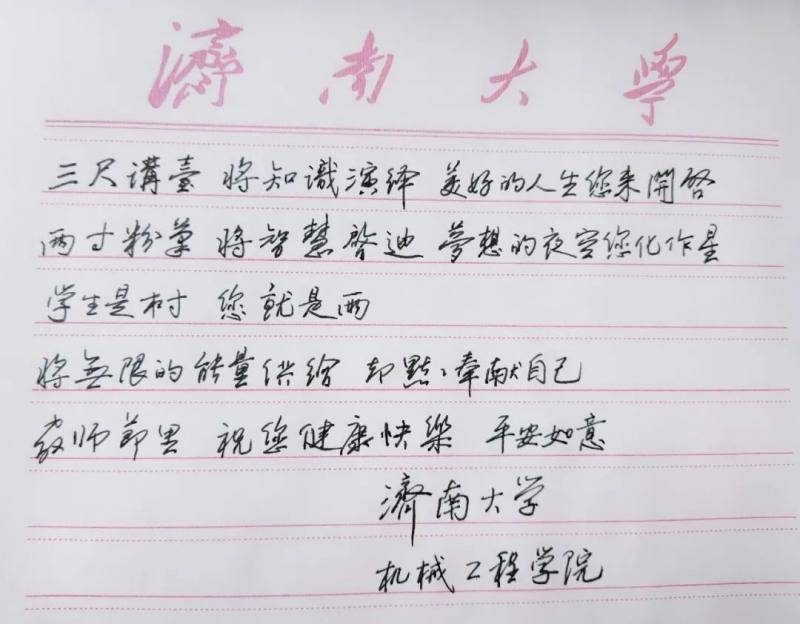 濟南大學
三尺講臺 将知識演绎 美好的人生您来開啓
两寸粉筆 将智慧啓迪 夢想的夜空您化作星
学生是树 您就是雨
将無限的能量供给 却默々奉献自己
教师節里 祝您健康快樂 平安如意
濟南大学
机械工程学院